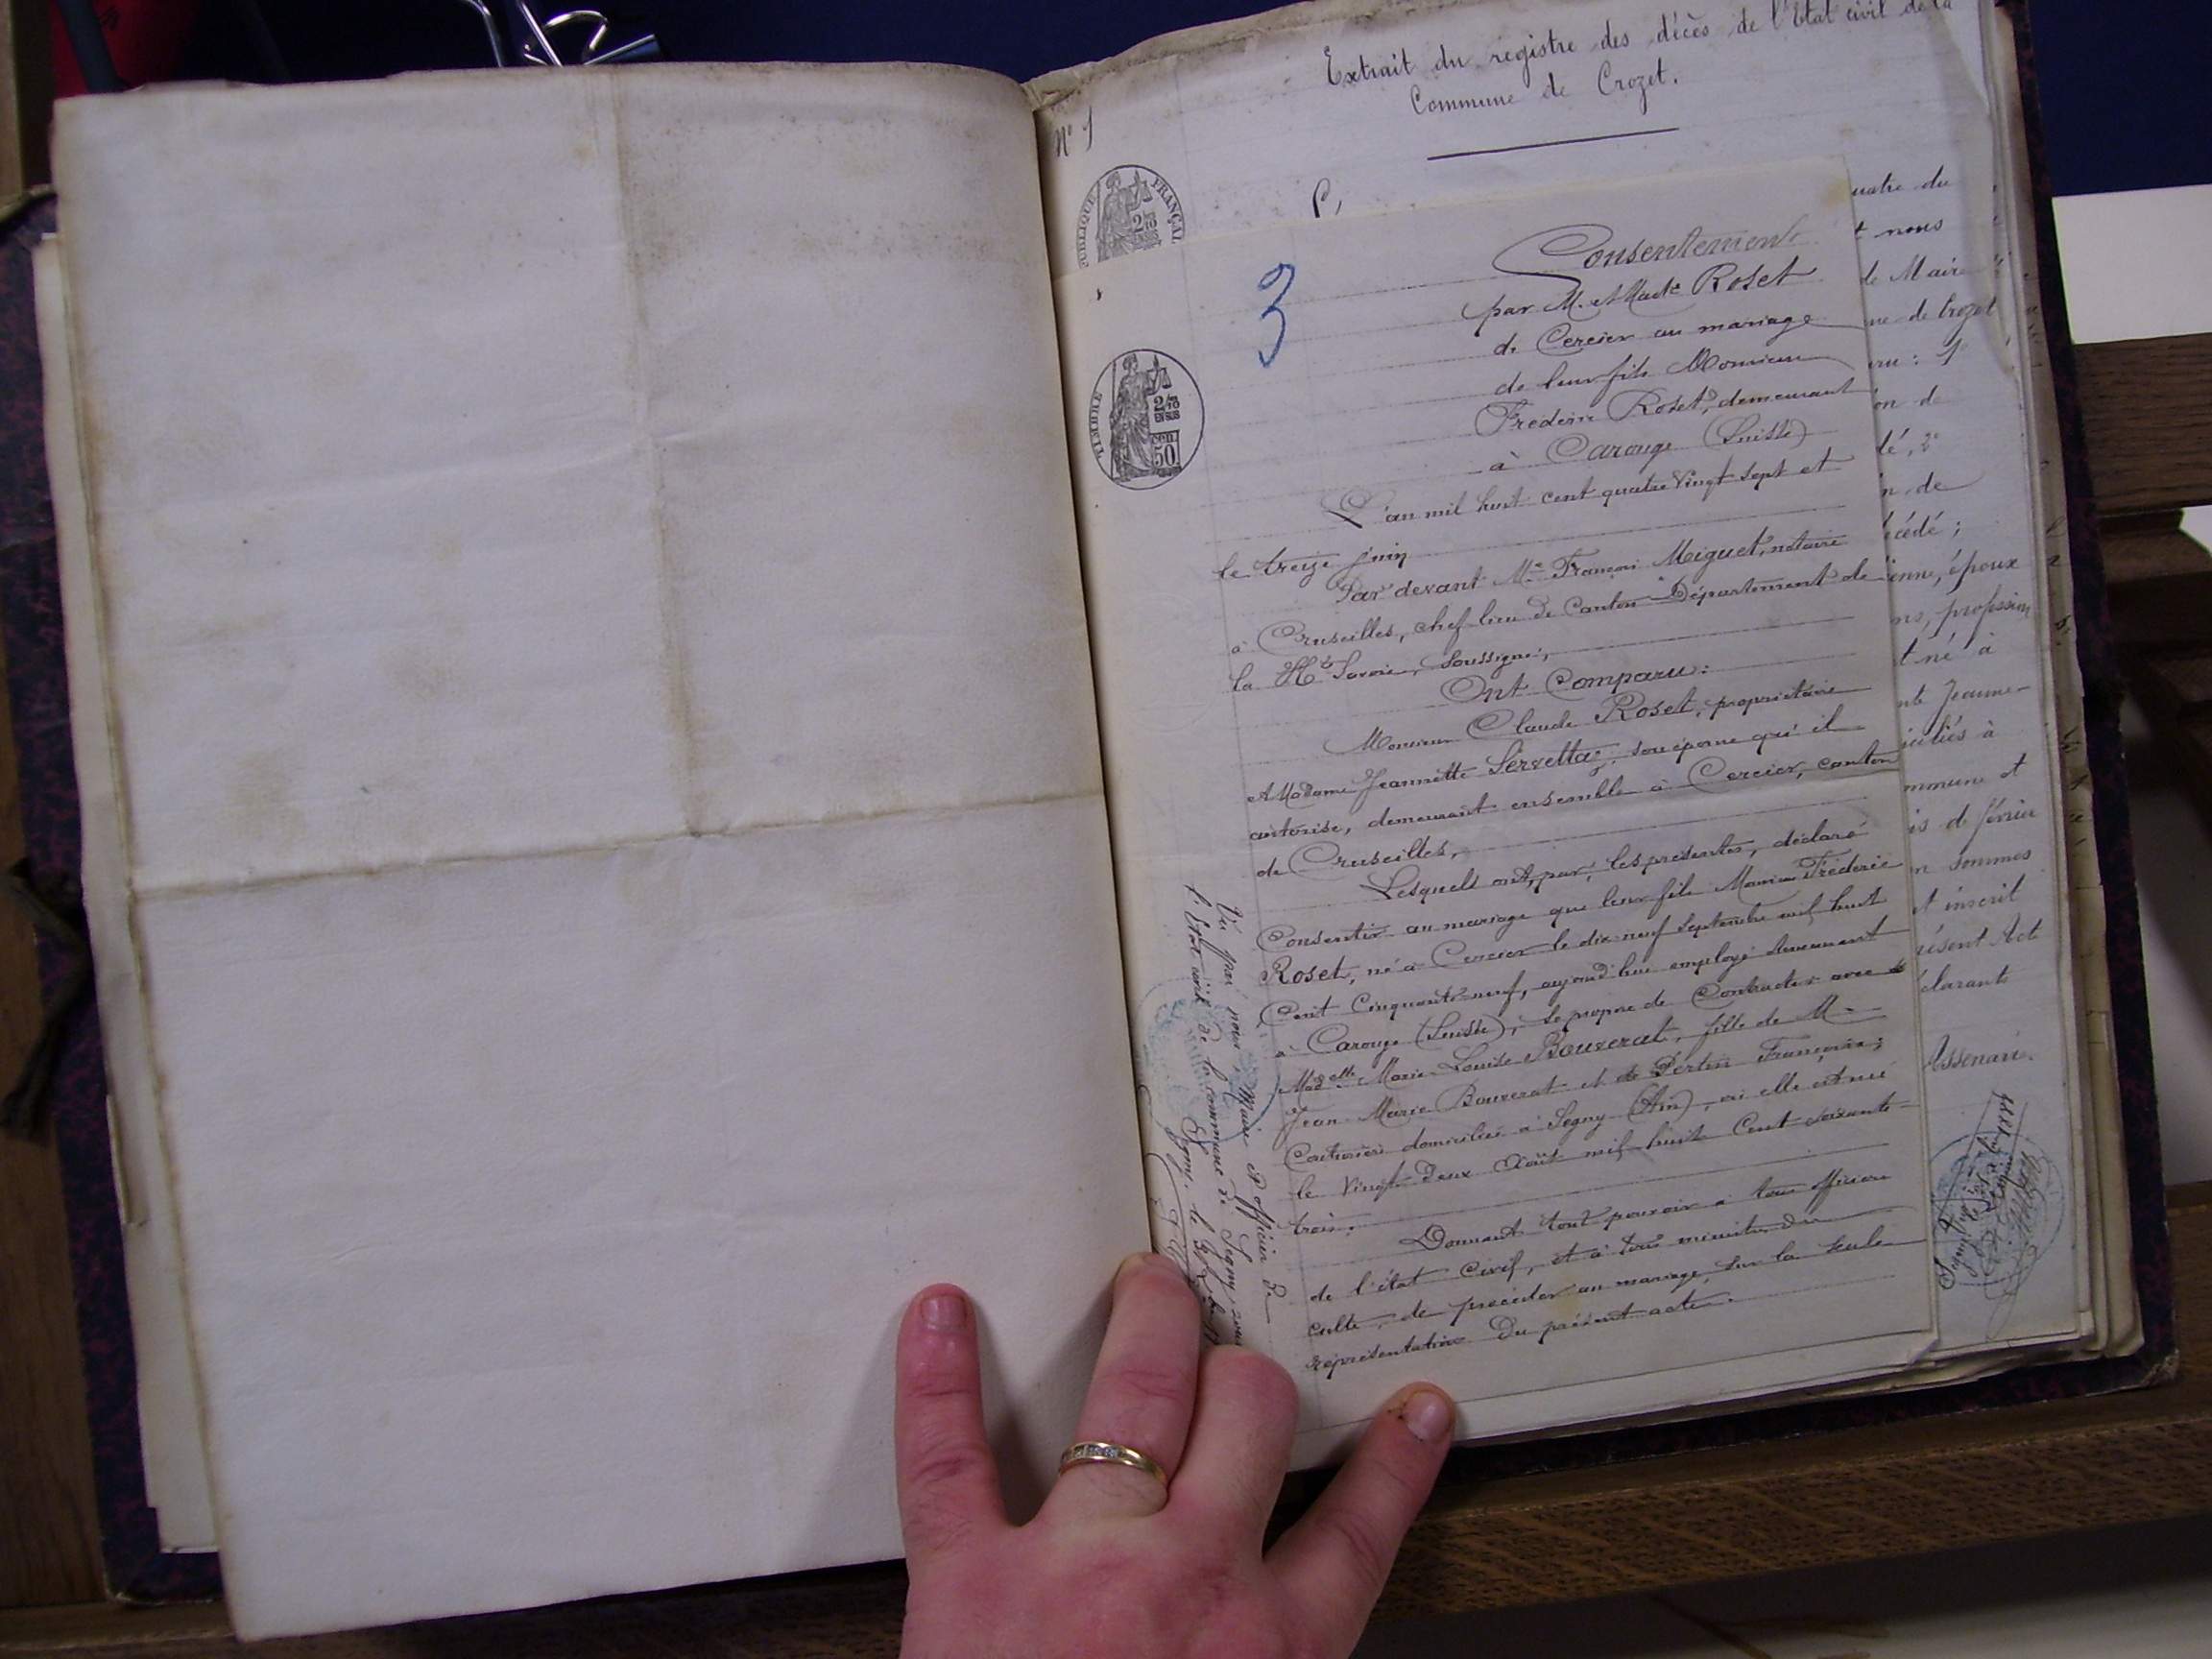 Extrait du registre des décès de l'Etat civil de la
Commune de Crozet.
N° 1
RÉPUBLIQUE FRANÇAISE
3
TIMBRE
2/10
EN SUS
50
Consentement
par M. et Made Roset
de Cercier au mariage
de leur fils Monsieur
Frédéric Roset, demeurant
à Carouge (Suisse)
L'an mil huit cent quatre vingt sept et
le treize juin
Par devant Me François Miguet, notaire
à Cruseilles, chef lieu de Canton Département de
la Hte Savoie, soussigné,
Ont Comparu:
Monsieur Claude Roset, propriétaire
et Madame Jeannette Servettaz, son épouse qu'il
autorise, demeurant ensemble à Cercier, canton
de Cruseilles,
Lesquels ont, par les présentes, déclaré
Consentir au mariage que leur fils Monsieur Frédéric
Roset, né à Cercier le dix neuf Septembre mil huit
Cent Cinquante neuf, aujourd'hui employé demeurant
à Carouge (Suisse), se propose de Contracter avec
Madelle Marie Louise Bouverat, fille de M.
Jean Marie Bouverat et de Pertin Françoise,
domiciliés à Segny (Ain), où elle est née
le Vingt Deux Août mil huit Cent soixante
trois.
Donnant tout pouvoir à tous officiers
de l'état Civil, et à tous ministres du
culte, de procéder au mariage, sur la seule
représentation Du présent acte.
Vu par nous, Maire et officier de
l'Etat civil de la commune de Segny
Segny, le
uatre du
t nous
de Maire
ne de Crozet
ru : 1°
on de
dé, 2°
n de
écédé ;
enne, époux
ns, profession
t né à
nte Jeanne
iciliés à
mmune et
is de février
n sommes
et inscrit
résent Acte
éclarants